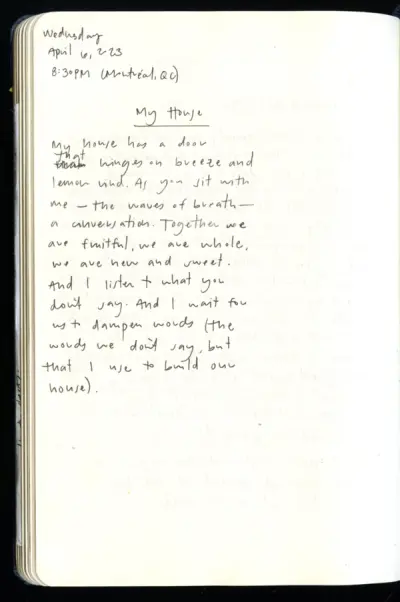 Wednesday
April 6, 2023
8:30PM (Montréal, QC)
My House
My house has a door
that
hinges on breeze and
lemon rind. As you sit with
me – the waves of breath –
a conversation. Together we
are fruitful, we are whole,
we are new and sweet.
And I listen to what you
don't say. And I wait for
us to dampen words (the
words we don't say, but
that I use to build our
house).